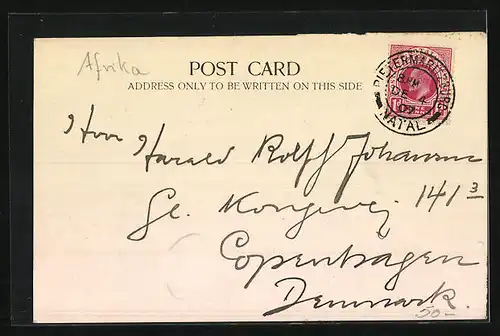 Afrika
POST CARD
ADDRESS ONLY TO BE WRITTEN ON THIS SIDE
PIETERMARITZBURG
8 PM
DE 4
NATAL
Herr Harald Rolff Johansen
Gl. Kongevej 141³
Copenhagen
Denmark.
50-